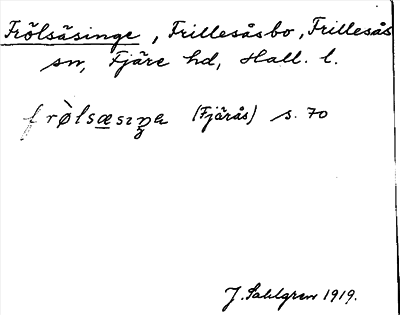 Frölsäsinge, Frillesåsbo, Frillesås
sn, Fjäre hd, Hall. l.
(Fjärås) s. 70
J. Sahlgren 1919.